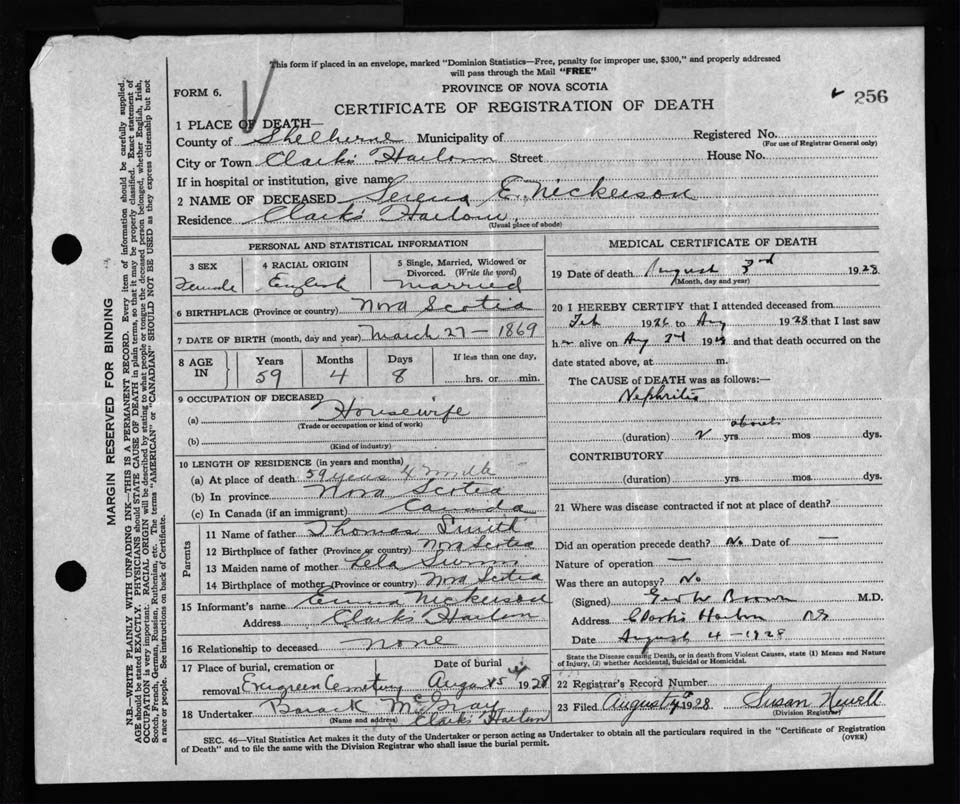 This form if placed in an envelope, marked "Dominion Statistics—Free, penalty for improper use, $300," and properly addressed
will pass through the Mail "FREE"
PROVINCE OF NOVA SCOTIA
FORM 6.
CERTIFICATE OF REGISTRATION OF DEATH
256
1 PLACE OF DEATH—
County of Shelburne Municipality of Registered No.
(For use of Registrar General only)
City or Town Clark's Harbour Street House No.
If in hospital or institution, give name
2 NAME OF DECEASED Serena E. Nickerson
Residence Clark's Harbour,
(Usual place of abode)
PERSONAL AND STATISTICAL INFORMATION
3 SEX 4 RACIAL ORIGIN 5 Single, Married, Widowed or
Divorced. (Write the word)
Female English Married
6 BIRTHPLACE (Province or country) Nova Scotia
7 DATE OF BIRTH (month, day and year) March 27 — 1869
8 AGE IN Years Months Days If less than one day,
59 4 8 hrs. or min.
9 OCCUPATION OF DECEASED
(a) Housewife
(Trade or occupation or kind of work)
(b)
(Kind of industry)
10 LENGTH OF RESIDENCE (in years and months)
(a) At place of death 59 years 4 months
(b) In province Nova Scotia
(c) In Canada (if an immigrant) Canada
Parents
11 Name of father Thomas Smith
12 Birthplace of father (Province or country) Nova Scotia
13 Maiden name of mother Lela
14 Birthplace of mother (Province or country) Nova Scotia
15 Informant's name Emma Nickerson
Address Clark's Harbor
16 Relationship to deceased none
17 Place of burial, cremation or Date of burial
removal Evergreen Cemetery Aug 5 1928
18 Undertaker Barack McGray
(Name and address) Clark's Harbor
MEDICAL CERTIFICATE OF DEATH
19 Date of death August 3rd 1928
(Month, day and year)
20 I HEREBY CERTIFY that I attended deceased from
Feb 1926 to Aug 1928 that I last saw
her alive on Aug 3rd 1928 and that death occurred on the
date stated above, at m.
The CAUSE of DEATH was as follows:—
Nephritis
about
(duration) 2 yrs mos dys.
CONTRIBUTORY
(duration) yrs. mos. dys.
21 Where was disease contracted if not at place of death?
Did an operation precede death? No Date of —
Nature of operation —
Was there an autopsy? No
(Signed) Geo W Brown M.D.
Address Clarks Harbor NS
Date August 4 — 1928
State the Disease causing Death, or in death from Violent Causes, state (1) Means and Nature
of Injury, (2) whether Accidental, Suicidal or Homicidal.
22 Registrar's Record Number
23 Filed August 1928 Susan Newell
(Division Registrar)
SEC. 46—Vital Statistics Act makes it the duty of the Undertaker or person acting as Undertaker to obtain all the particulars required in the "Certificate of Registration
of Death" and to file the same with the Division Registrar who shall issue the burial permit.
(OVER)
MARGIN RESERVED FOR BINDING
N.B.—WRITE PLAINLY WITH UNFADING INK—THIS IS A PERMANENT RECORD. Every item of information should be carefully supplied.
AGE should be stated EXACTLY. PHYSICIANS should STATE CAUSE OF DEATH in plain terms, so that it may be properly classified. Exact statement of
OCCUPATION is very important. RACIAL ORIGIN will be described by stating to what people or tongue the deceased person belonged, whether English, Irish,
Scotch, French, German, Russian, Ruthenian, etc. The terms "AMERICAN" or "CANADIAN" SHOULD NOT BE USED as they express citizenship but not
a race or people. See instructions on back of Certificate.